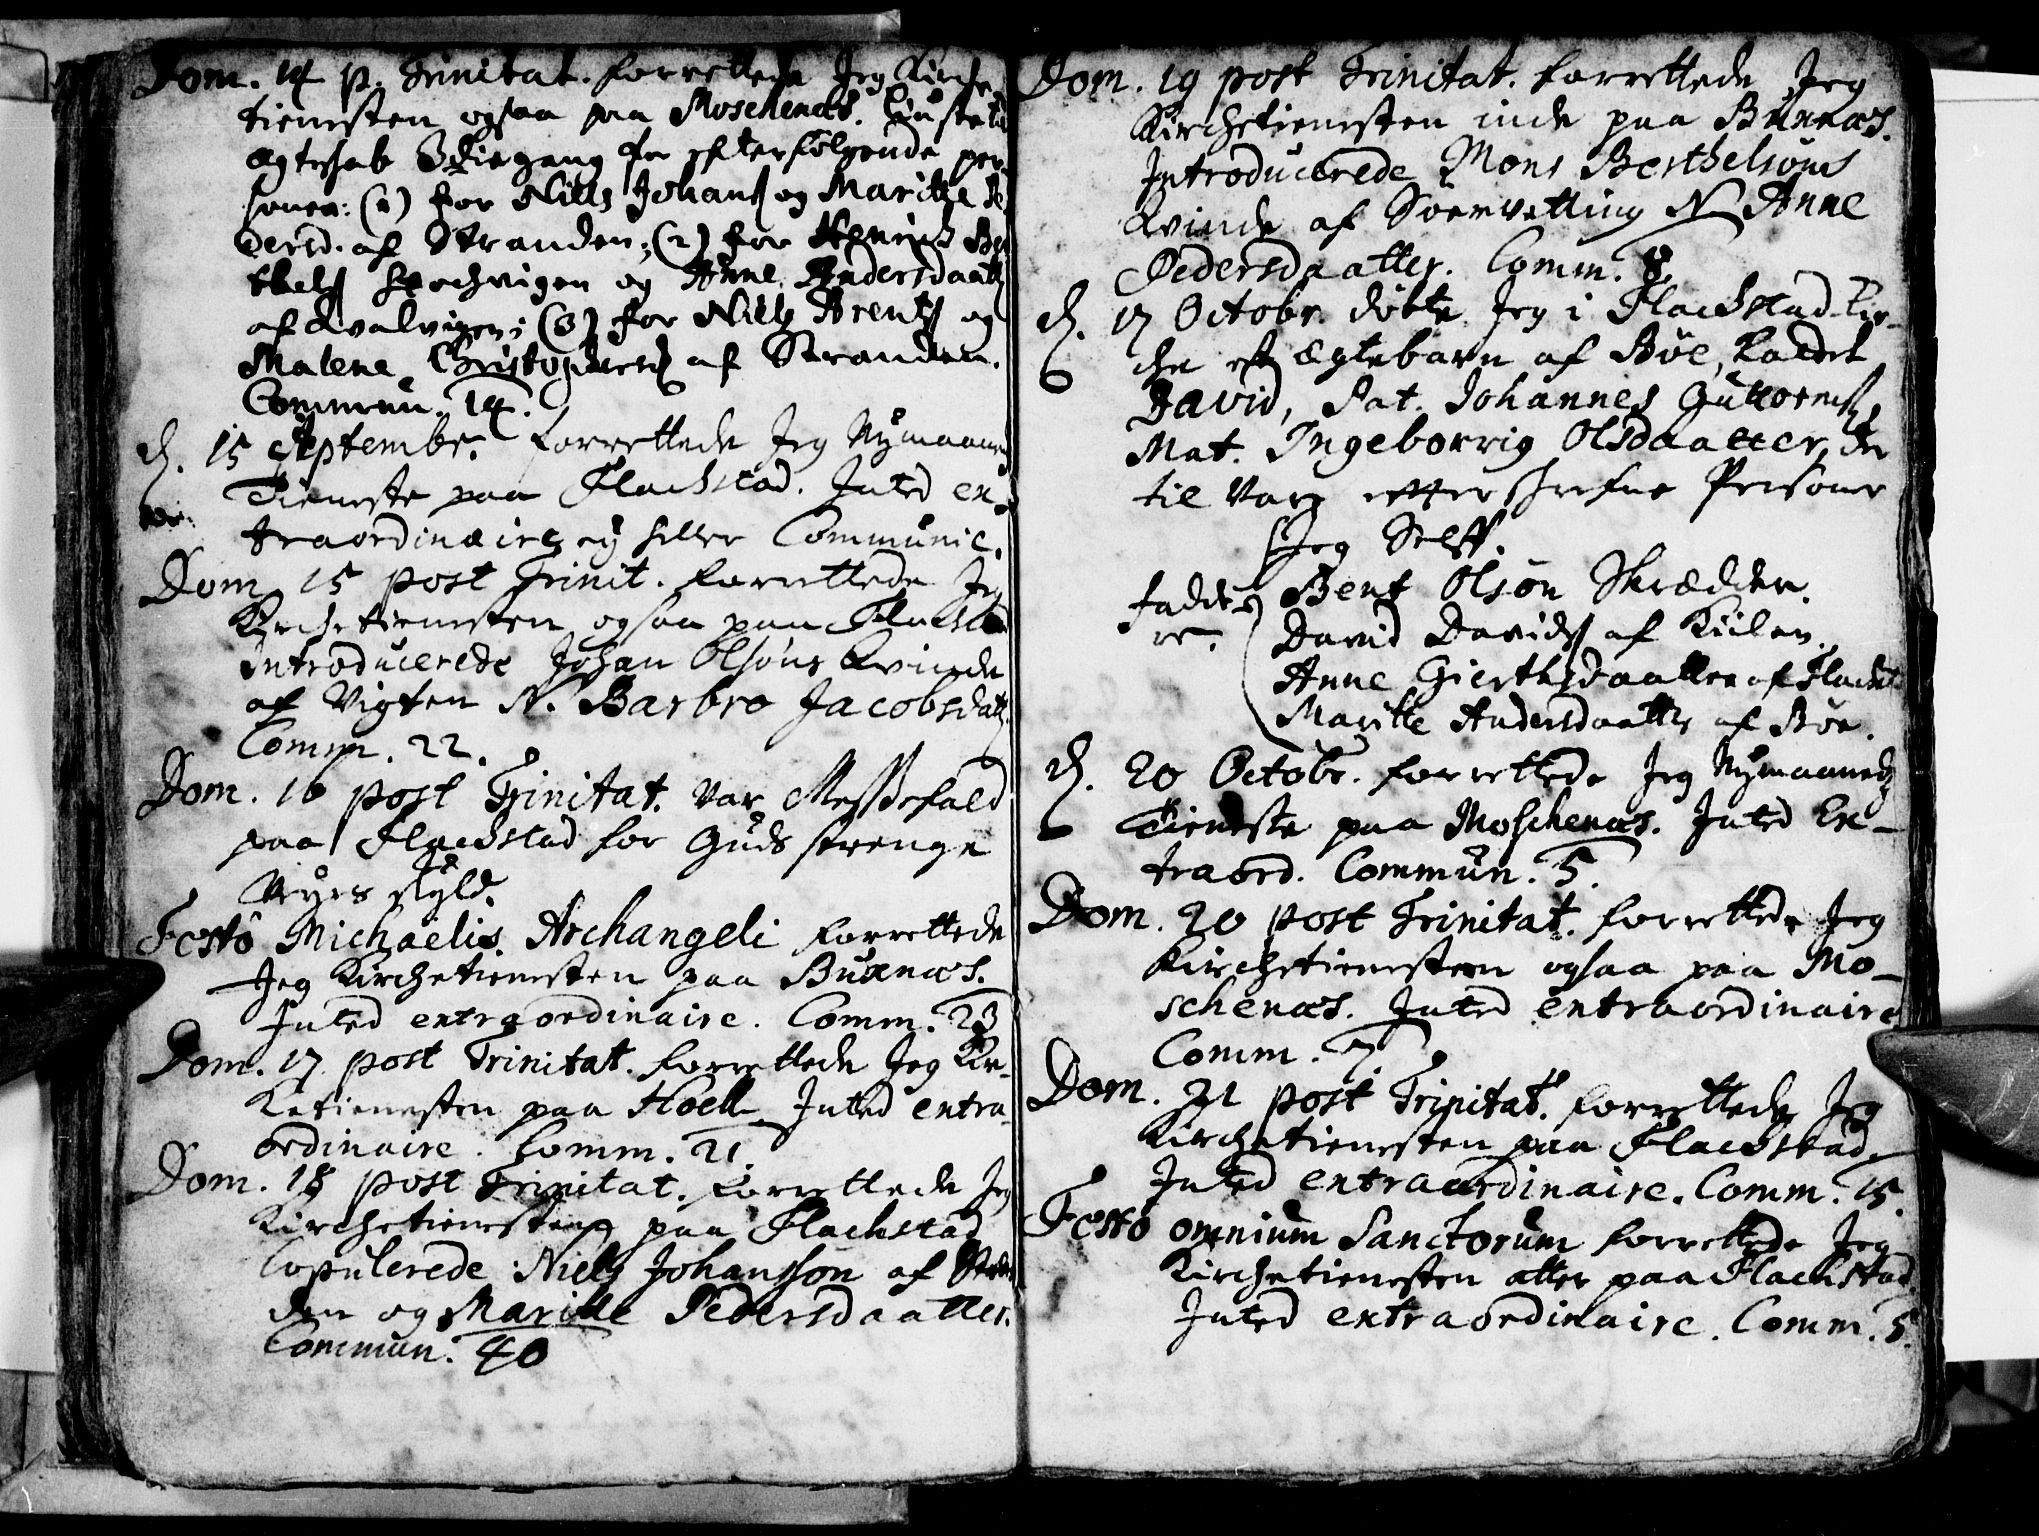 Dom. 14 p. Trinitat. forrettede Jeg Kirche-
tienesten ogsaa paa Moschenæs. Liuste til
Ægteskab 3die gang for efterfølgende per-
soner: (1) for Niels Johans og Maritte Pe-
dersd. af Stranden; (2) for
thels og Anne Andersdaatt
af Kvalvigen; (3) for Niels Arents og
Malene Christophersd af Stranden.
Commun. 14.
d. 15 Septembr. forrettede Jeg Nymaaneds
Tieneste paa Flachstad. Inted ex-
traordinaire ey heller Communic.
Dom. 15 post Trinit. forrettede Jeg
Kirchetienesten ogsaa paa Flakstad
Introducerede Johan Olsøns Kvinde
af Vigten N. Barbro Jacobsdatt.
Comm. 22.
Dom. 16 post Trinitat. var Messefald
paa Flachstad for Guds strenge
Veyrs skyld.
Festo Michaelis Archangeli forrettede
Jeg Kirchetienesten paa Buxnæs.
Inted extraordinaire. Comm. 23
Dom. 17 post Trinitat. forrettede Jeg Kir-
ketienesten paa Hoell Inted extra
ordinaire. Comm. 21.
Dom. 18 post Trinitat. forrettede Jeg
Kirchetienesten paa Flachstad
Copulerede Niels Johansson af Stran
den og Maritte Pedersdaatter.
Commun. 40
Dom. 19 post Trinitat. forrettede Jeg
Kirchetienesten inde paa Buxnæs.
Introducerede Mons Berthelsøns
Kvinde af N. Anne
Pedersdaatter. Comm. 8.
d. 17 Octobr. døbte Jeg i Flachstad Kir-
che et Ægtebarn af Bøe, kaldet
David, Pat. Johannes Guttorms,
Mat. Ingeborrig Olsdaatter, der
til vare efterskrefne Persone
Jeg Self.
Fadde- Bent Olsøn Skrædder.
re. David Davids af Kiilen.
Anne Gierthsdaatter af Flachst
Maritte Andersdaatter af Bøe.
d. 20 Octobr. forrettede Jeg Nymaaneds
Tieneste paa Moschenæs. Inted Ex-
traord. Commun. 5.
Dom. 20 post Trinitat. forrettede Jeg
Kirchetienesten ogsaa paa Mo-
schenæs. Inted extraordinaire
Comm. 7.
Dom. 21 post Trinitat. forrettede Jeg
Kirchetienesten paa Flachstad
Inted extraordinaire. Comm. 15.
Festo omnium Sanctorum forrettede Jeg
Kirchetienesten atter paa Flachstad
Inted extraordinaire. Comm. 5.